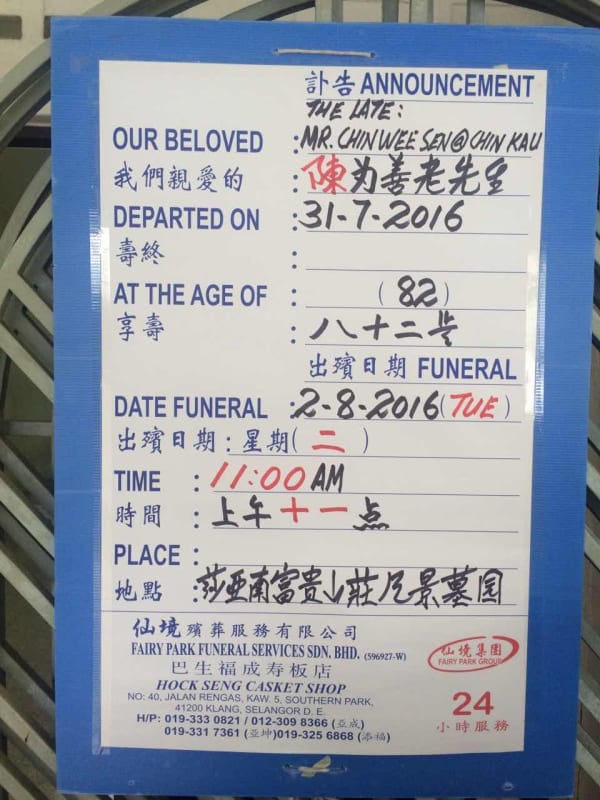 訃告 ANNOUNCEMENT
THE LATE:
OUR BELOVED : MR. CHIN WEE SEN @ CHIN KAU
我們親愛的 : 陳为善老先生
DEPARTED ON : 31-7-2016
壽終 :
AT THE AGE OF : (82)
享壽 : 八十二岁
出殯日期 FUNERAL
DATE FUNERAL : 2-8-2016 (TUE)
出殯日期 : 星期(二)
TIME : 11:00 AM
時間 : 上午十一点
PLACE :
地點 : 莎亚南富贵山莊 景墓园
仙境殯葬服務有限公司
FAIRY PARK FUNERAL SERVICES SDN. BHD. (596927-W)
巴生福成寿板店
HOCK SENG CASKET SHOP
NO: 40, JALAN RENGAS, KAW. 5, SOUTHERN PARK,
41200 KLANG, SELANGOR D. E.
H/P: 019-333 0821 / 012-309 8366 (亚成)
019-331 7361 (亚坤) 019-325 6868 (添福)
仙境集團
FAIRY PARK GROUP
24
小時服務